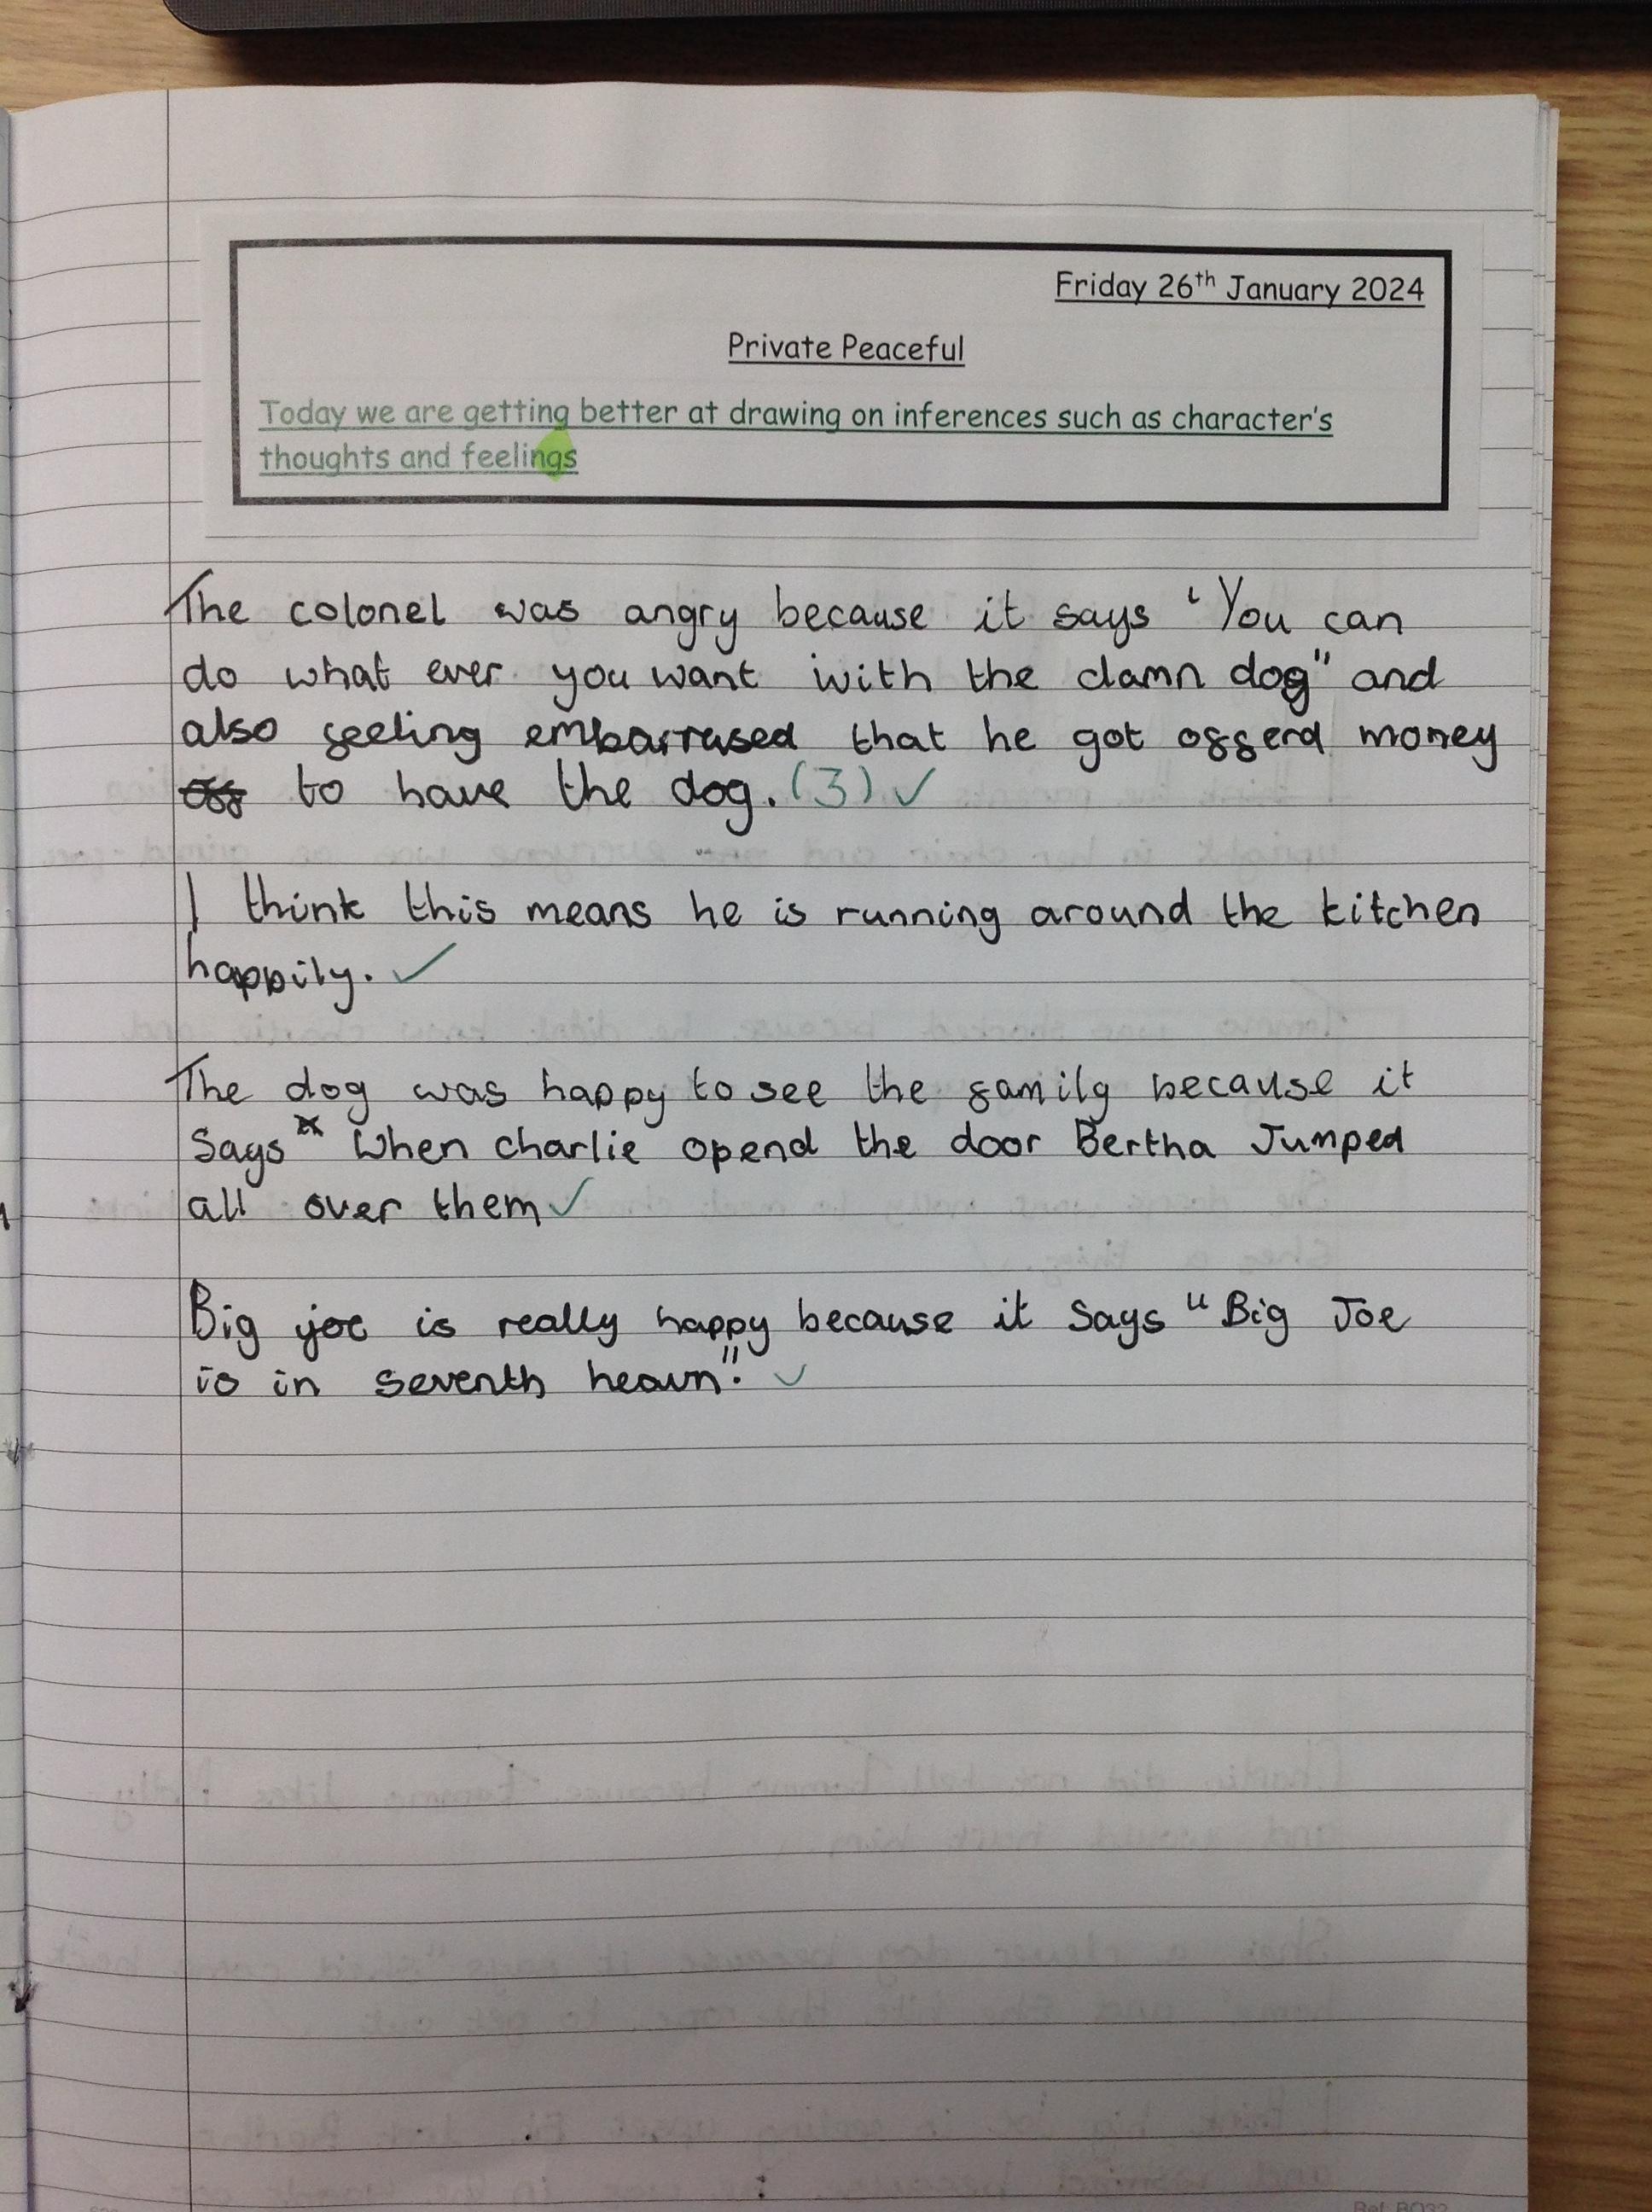 Friday 26th January 2024
Private Peaceful
Today we are getting better at drawing on inferences such as character's
thoughts and feelings
The colonel was angry because it says ‘You can
do what ever you want with the damn dog" and
also feeling embarrased that he got offerd money
to have the dog. (3) ✓
I think this means he is running around the kitchen
happily. ✓
The dog was happy to see the family because it
Says " When charlie opend the door Bertha Jumped
all over them ✓
Big joe is really happy because it Says "Big Joe
is in seventh heavn". ✓